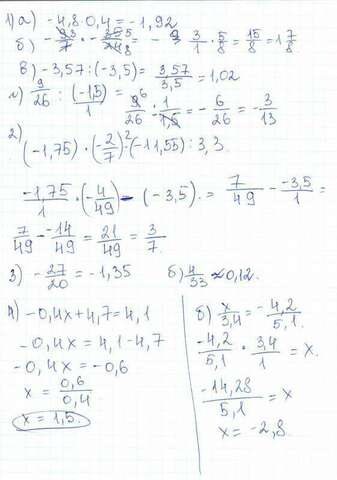 1) а) -4,8·0,4 = -1,92
б) -23/7 · -35/24 = 3/1 · 5/8 = 15/8 = 1 7/8
в) -3,57 : (-3,5) = 3,57/3,5 = 1,02
г) 9/26 : (-1,5)/1 = 9/26 · 1/-1,5 = -6/26 = -3/13
2) (-1,75) · (-2/7)² · (-11,55) : 3,3.
-1,75/1 · (-4/49) - (-3,5). = 7/49 - -3,5/1 =
7/49 - -14/49 = 21/49 = 3/7.
3) -27/20 = -1,35 б) 4/33 ≈ 0,12.
4) -0,4x + 4,7 = 4,1
-0,4x = 4,1 - 4,7
-0,4x = -0,6
x = 0,6/0,4
x = 1,5.
б) x/3,4 = -4,2/5,1.
-4,2/5,1 · 3,4/1 = x.
-14,28/5,1 = x
x = -2,8.